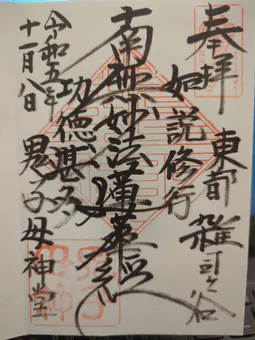 奉拝
東都 雑司ヶ谷
如説修行
南無妙法蓮華経
功徳甚多
令和五年
十一月八日
鬼子母神堂